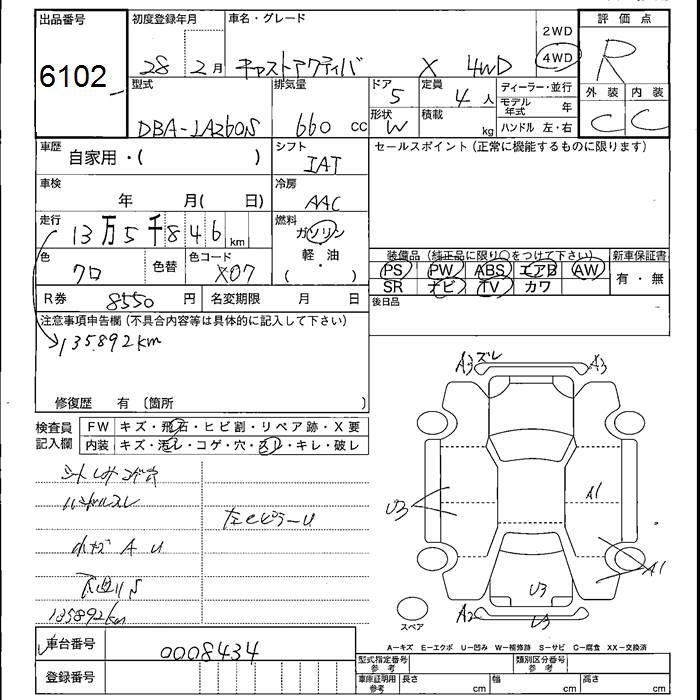 出品番号
6102
初度登録年月
28 2月
車名・グレード
キャストアクティバ X 4WD
2WD
4WD
評価点
R
外装 内装
C C
型式
DBA-LA260S
排気量
660 cc
ドア 5
形状 W
定員 4人
積載 kg
ディーラー・並行
モデル年式 年
ハンドル 左・右
車歴
自家用・( )
シフト
IAT
セールスポイント(正常に機能するものに限ります)
車検
年 月( 日)
冷房
AAC
走行
13万5千846 km
燃料
ガソリン
軽・油
( )
色
クロ
色替
色コード
X07
装備品(純正品に限り○をつけて下さい)
PS PW ABS エアB AW
SR ナビ TV カワ
新車保証書
有・無
R券 8550円
名変期限 月 日
後日品
注意事項申告欄(不具合内容等は具体的に記入して下さい)
135892km
修復歴 有〔箇所 〕
検査員記入欄
FW キズ・飛石・ヒビ割・リペア跡・X要
内装 キズ・汚レ・コゲ・穴・スレ・キレ・破レ
ハンドルスレ
左Cピラーu
135892km
A3 ズレ
A3
U3
A1
A1
U3
A2
U3
スペア
車台番号
0008434
登録番号
A-キズ E-エクボ U-凹み W-補修跡 S-サビ C-腐食 XX-交換済
型式指定番号 参考
類別区分番号 参考
車庫証明用 参考
長さ cm
幅 cm
高さ cm